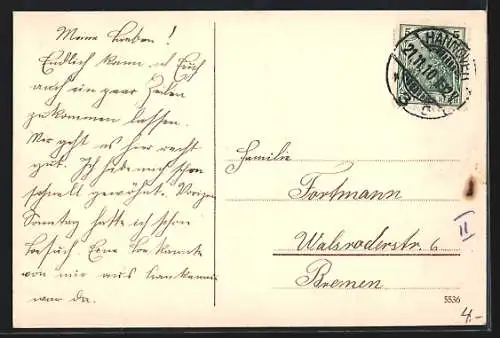 Meine Lieben!
Endlich kann ich Euch
auch ein paar Zeilen
zukommen lassen.
Mir geht es hier recht
gut. Ich habe mich schon
schnell gewöhnt. Vorigen
Sonntag hatte ich schon
Besuch. Eine Bekannte
von mir aus
war da.
HANNOVER
21.11.10
Familie
Fortmann
Walsroderstr. 6
Bremen
II
5536
4.-